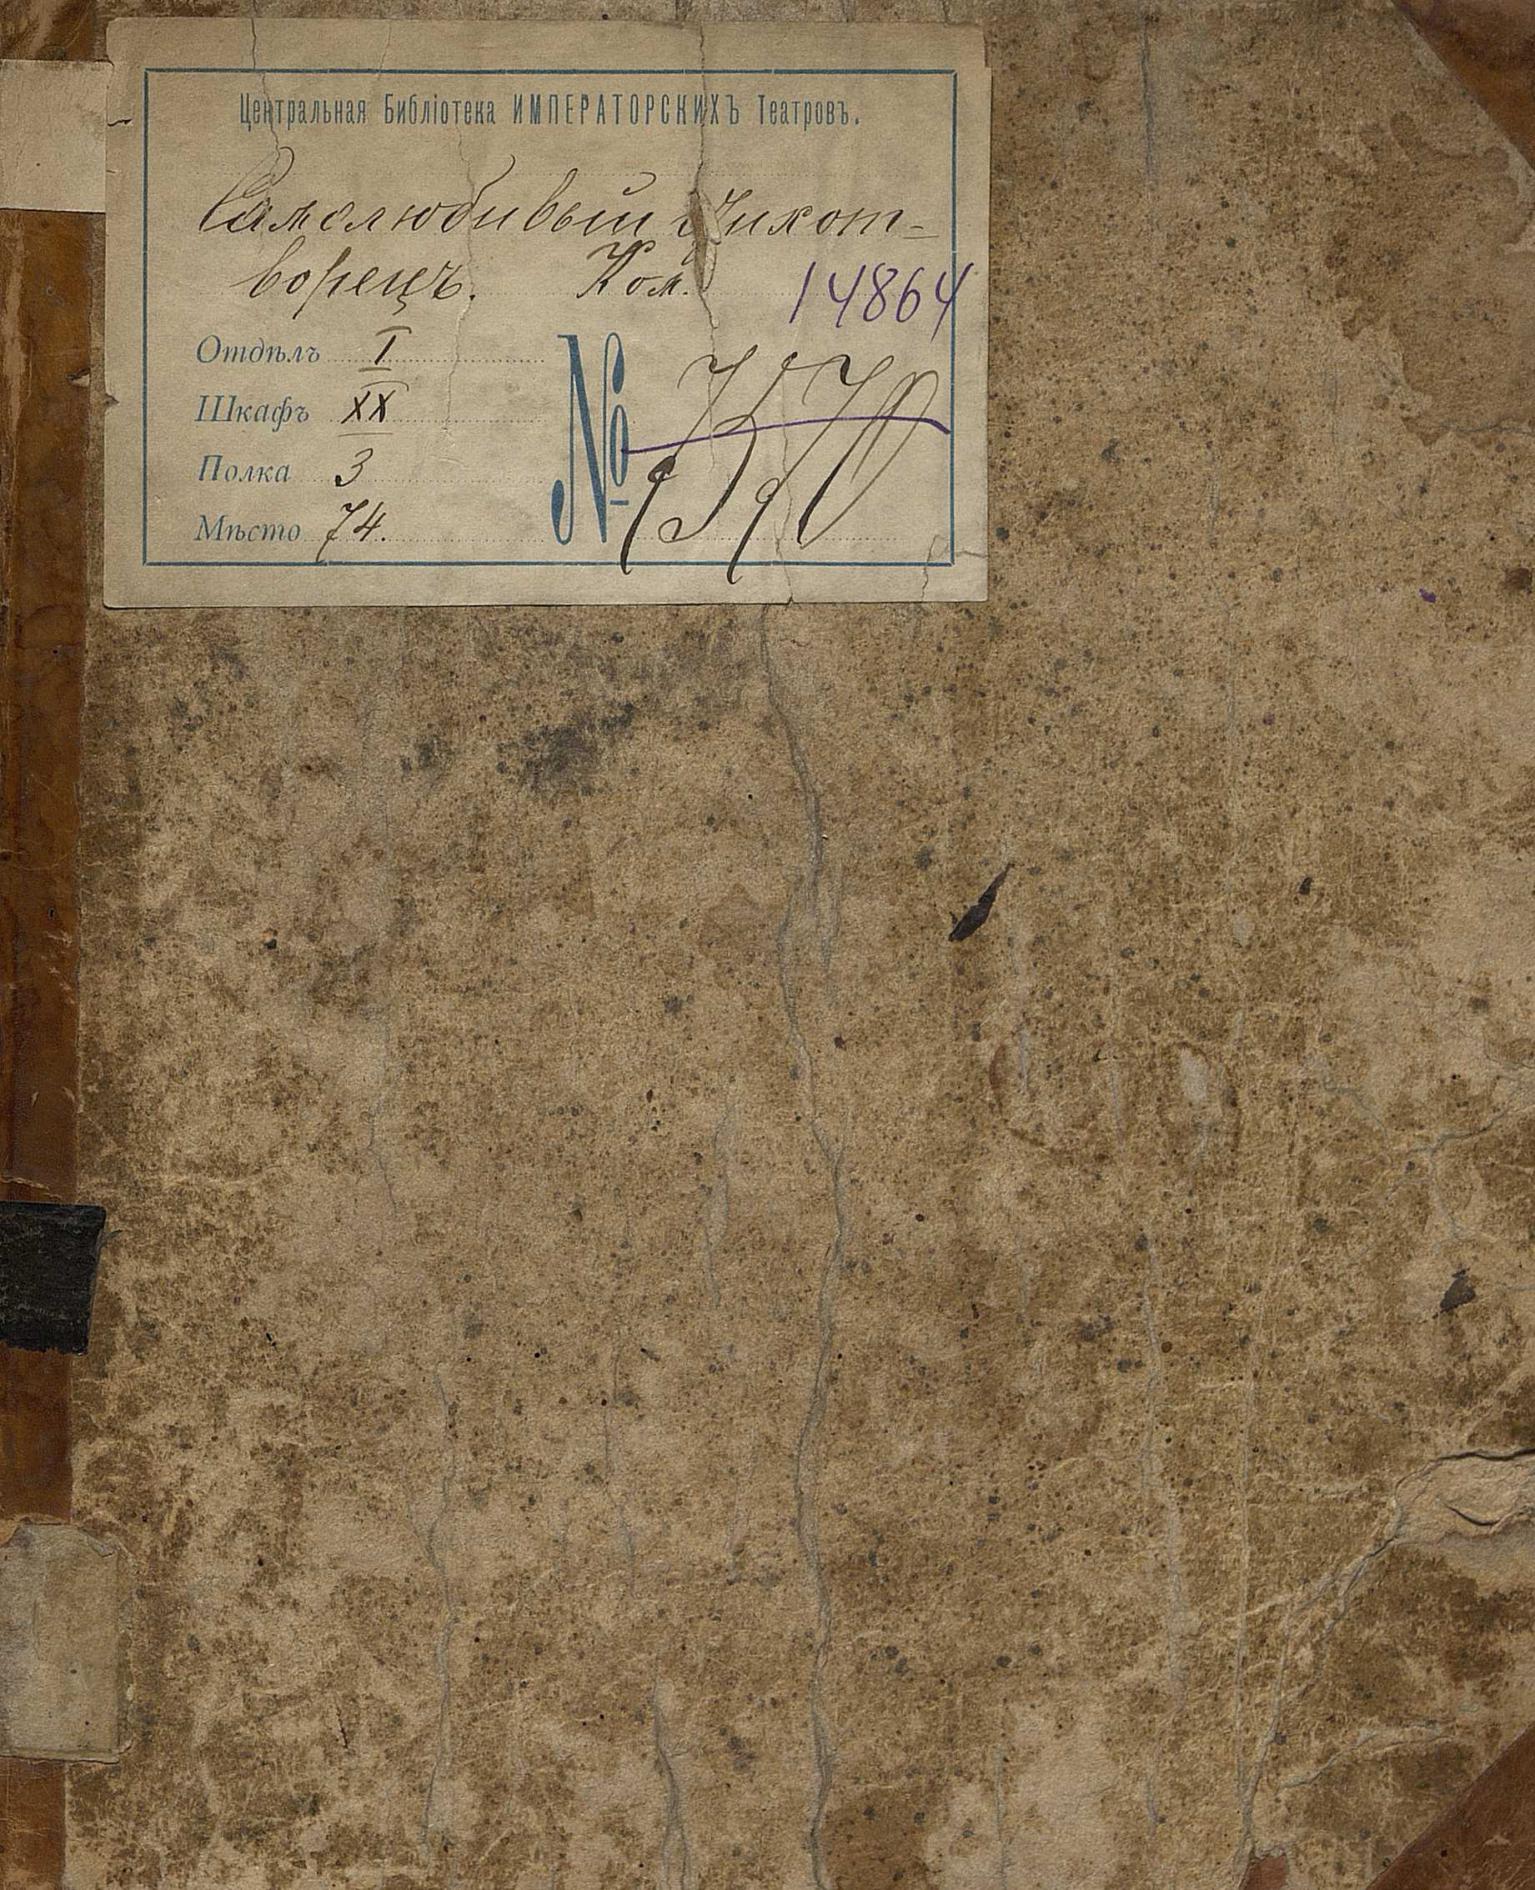 Центральная Библіотека ИМПЕРАТОРСКИХЪ Театровъ.
Самолюбивый Стихот-
ворецъ. Ком.
14864
Отдѣлъ I
Шкафъ XX
Полка 3
Мѣсто 74.
№